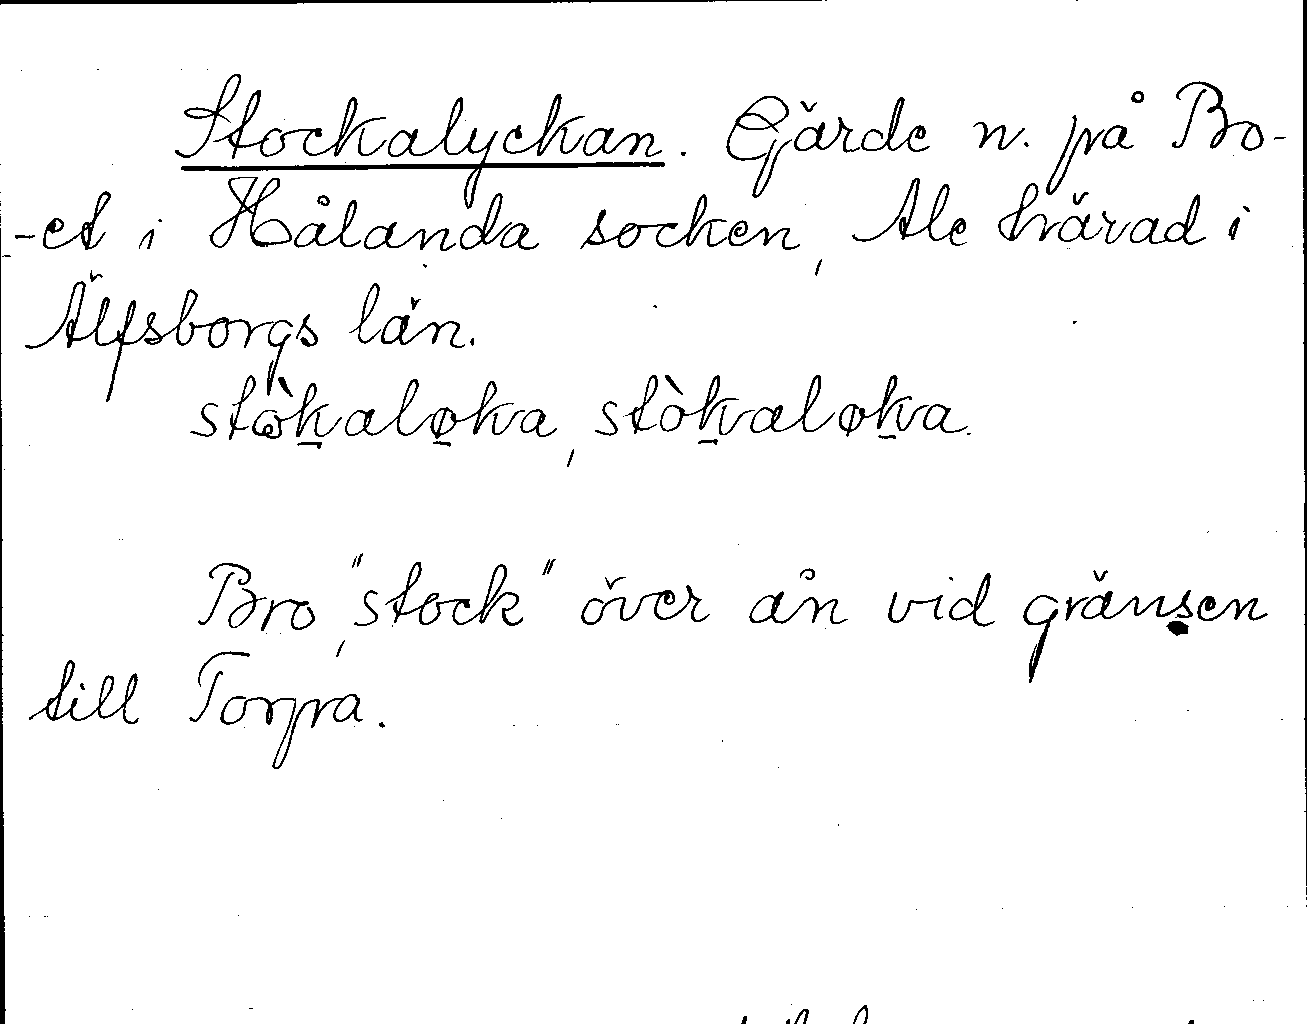 Stockalyckan. Gärde n. på Bo-
-et i Hålanda socken, Ale härad i
Älfsborgs län.
stòk̲alø̲ka, stòk̲aløk̲a.
Bro, "stock" över ån vid gränsen
till Torpa.